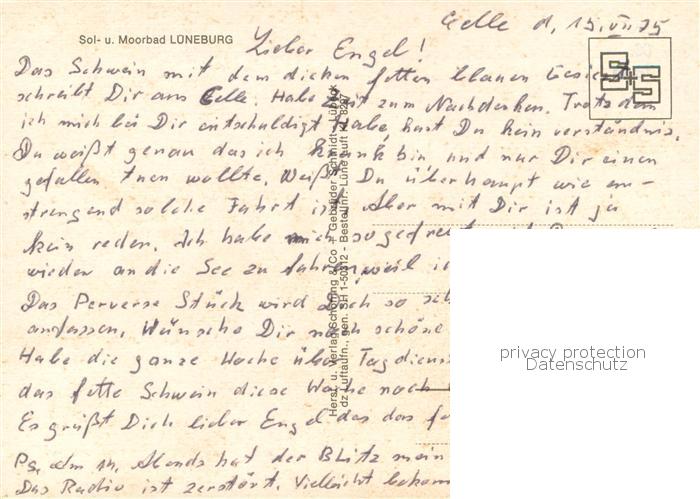 Celle d. 15.VII.75
Sol- u. Moorbad LÜNEBURG
Lieber Engel!
Das Schwein mit dem dicken fetten blauen
schreibt Dir aus Celle. Habe Zeit zum Nachdenken. Trotzdem
ich mich bei Dir entschuldigt habe, hast Du kein verständnis.
Du weißt genau das ich krank bin und nur Dir einen
gefallen tuen wollte. Weißt Du überhaupt wie an-
strengend solche Fahrt ist. Aber mit Dir ist ja
kein reden. Ich habe mich so gefreut
wieder an die See zu fahren, weil
Das Perverse Stück wird Dich so
anfassen. Wünsche Dir noch schöne
Habe die ganze Woche über Tagdienst
das fette Schwein diese Woche noch
Es grüßt Dich lieber Engel das das
Ps. Am 14. Abends hat der Blitz mein
Das Radio ist zerstört. Vielleicht
Herst. u. Verlag Schöning & Co + Gebrüder Schmidt, Lübeck
dz Luftaufn., gen. SH 1-50312 - Bestellnr. Lüne Luft
S+S
privacy protection
Datenschutz